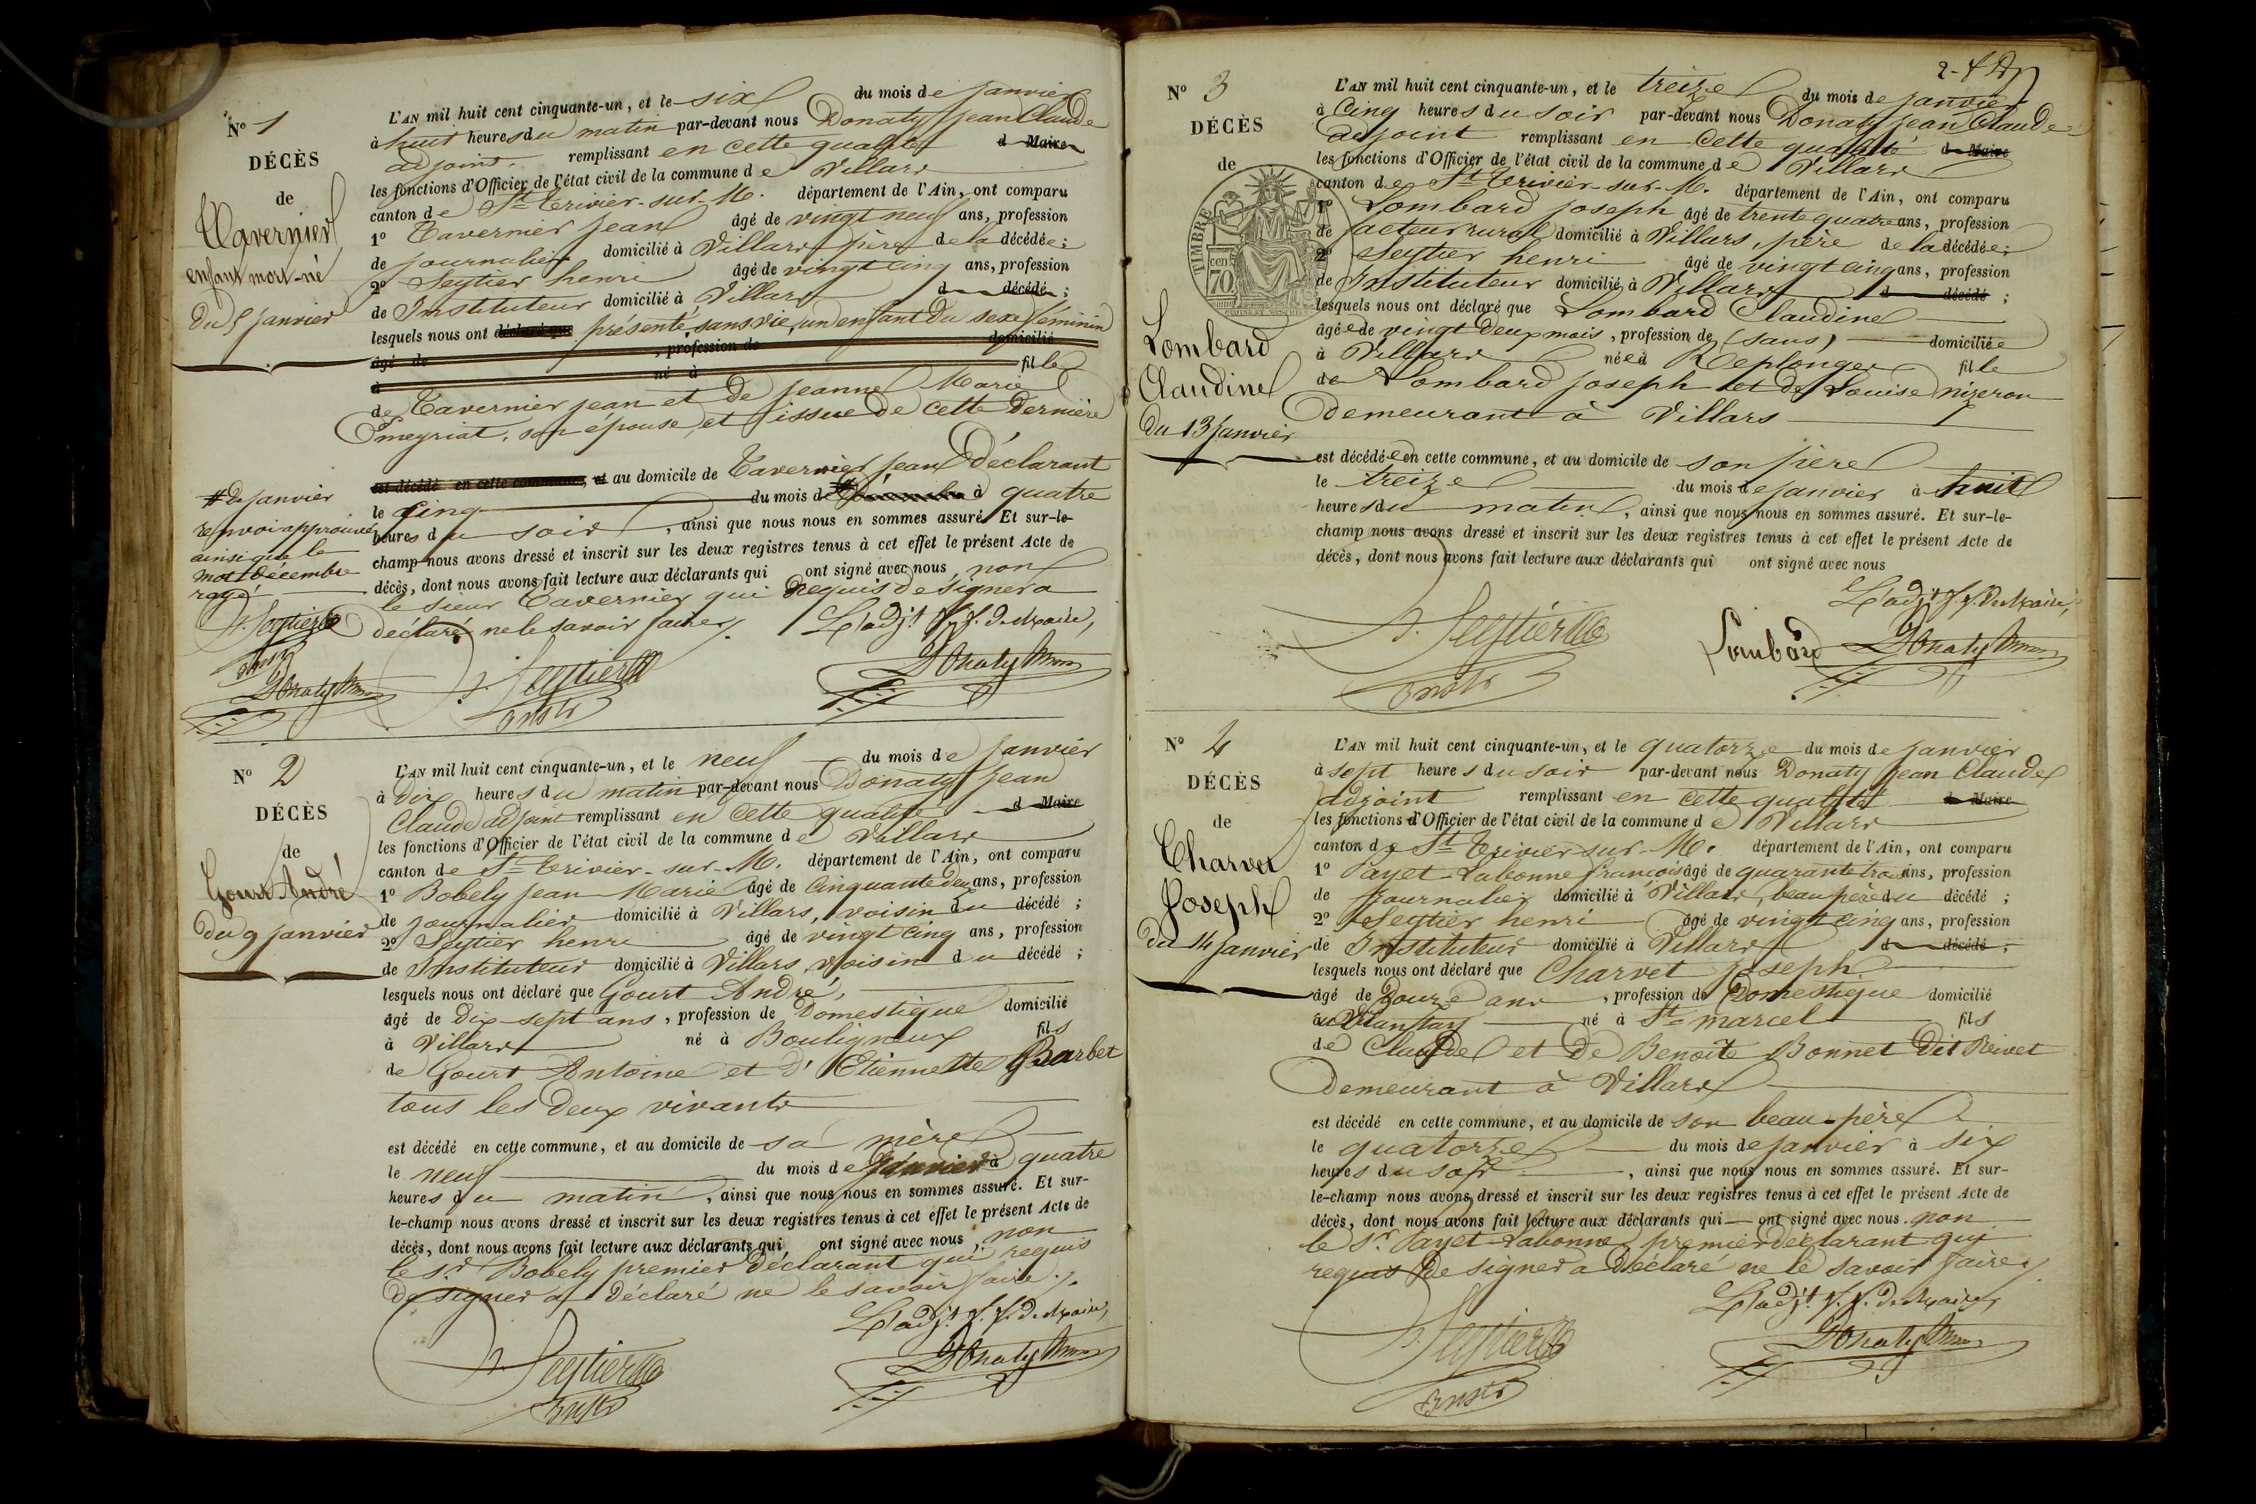 N° 1
DÉCÈS
de
Tavernier
enfant mort-né
du 5 janvier
L'AN mil huit cent cinquante-un, et le six du mois de janvier
à huit heures du matin par-devant nous Donaty Jean Claude
adjoint remplissant en cette qualité d Maire
les fonctions d'Officier de l'état civil de la commune de Villars
canton de St Trivier-sur-M. département de l'Ain, ont comparu
1° Tavernier Jean âgé de vingt neuf ans, profession
de journalier domicilié à Villars père de la décédée;
2° Seytier henri âgé de vingt cinq ans, profession
de Instituteur domicilié à Villars d décédé;
lesquels nous ont déclaré que présenté sans vie, un enfant du sexe féminin
âgé de , profession de domicilié
à né à fille
de Tavernier jean et de Jeanne Marie
Emeyriat, son épouse, et issue de cette dernière
est décédé en cette commune, et au domicile de Tavernier Jean Déclarant
le cinq du mois de # décembre à quatre
heures du soir, ainsi que nous nous en sommes assuré. Et sur-le-
champ nous avons dressé et inscrit sur les deux registres tenus à cet effet le présent Acte de
décès, dont nous avons fait lecture aux déclarants qui ont signé avec nous, non
le sieur Tavernier qui requis de signer a
déclaré ne le savoir faire
# de janvier
renvoi approuvé
ainsi que le
mot décembre
rayé
h. Seytier
Instr
Donaty
h. Seytier
Instr
L'adjt f.f. de Maire,
Donaty
N° 2
DÉCÈS
de
Gourt André
du 9 janvier
L'AN mil huit cent cinquante-un, et le neuf du mois de janvier
à dix heures du matin par-devant nous Donaty Jean
Claude adjoint remplissant en cette qualité d Maire
les fonctions d'Officier de l'état civil de la commune de Villars
canton de St Trivier-sur-M. département de l'Ain, ont comparu
1° Bobely Jean Marie âgé de cinquante deux ans, profession
de journalier domicilié à Villars, voisin du décédé;
2° Seytier henri âgé de vingt cinq ans, profession
de Instituteur domicilié à Villars voisin du décédé;
lesquels nous ont déclaré que Gourt André,
âgé de dix-sept ans, profession de Domestique domicilié
à Villars né à Bouligneux fils
de Gourt Antoine et d'Etiennette Barbet
tous les deux vivants
est décédé en cette commune, et au domicile de sa mère
le neuf du mois de janvier à quatre
heures du matin, ainsi que nous nous en sommes assuré. Et sur-
le-champ nous avons dressé et inscrit sur les deux registres tenus à cet effet le présent Acte de
décès, dont nous avons fait lecture aux déclarants qui ont signé avec nous, non
le sr Bobely premier déclarant qui requis
de signer a déclaré ne le savoir faire.
L'adjt f.f. de Maire,
h. Seytier
Instr
Donaty
N° 3
DÉCÈS
de
TIMBRE
70
cen
Lombard
Claudine
du 13 janvier
L'AN mil huit cent cinquante-un, et le treize du mois de janvier
à cinq heures du soir par-devant nous Donaty Jean Claude
adjoint remplissant en cette qualité d Maire
les fonctions d'Officier de l'état civil de la commune de Villars
canton de St Trivier-sur-M. département de l'Ain, ont comparu
1° Lombard joseph âgé de trente quatre ans, profession
de facteur rural domicilié à Villars, père de la décédée;
2° Seytier henri âgé de vingt cinq ans, profession
de Instituteur domicilié à Villars d décédé;
lesquels nous ont déclaré que Lombard Claudine
âgée de vingt deux mois, profession de (sans) domiciliée
à Villars née à Replonges fille
de Lombard joseph et de Louise nizeron
demeurant à Villars
est décédée en cette commune, et au domicile de son père
le treize du mois de janvier à huit
heures du matin, ainsi que nous nous en sommes assuré. Et sur-le-
champ nous avons dressé et inscrit sur les deux registres tenus à cet effet le présent Acte de
décès, dont nous avons fait lecture aux déclarants qui ont signé avec nous
L'adjt f.f. de Maire,
h. Seytier
Instr
Lombard
Donaty
N° 4
DÉCÈS
de
Charvet
Joseph
du 14 janvier
L'AN mil huit cent cinquante-un, et le quatorze du mois de janvier
à sept heures du soir par-devant nous Donaty Jean Claude
adjoint remplissant en cette qualité d Maire
les fonctions d'Officier de l'état civil de la commune de Villars
canton de St Trivier-sur-M. département de l'Ain, ont comparu
1° Payet-Labonne françois âgé de quarante trois ans, profession
de journalier domicilié à Villars, beau père du décédé;
2° Seytier henri âgé de vingt cinq ans, profession
de Instituteur domicilié à Villars d décédé;
lesquels nous ont déclaré que Charvet Joseph
âgé de douze ans, profession de Domestique domicilié
né à St marcel fils
de Claude et de Benoîte Bonnet dit Rivet
demeurant à Villars
est décédé en cette commune, et au domicile de son beau-père
le quatorze du mois de janvier à six
heures du soir, ainsi que nous nous en sommes assuré. Et sur-
le-champ nous avons dressé et inscrit sur les deux registres tenus à cet effet le présent Acte de
décès, dont nous avons fait lecture aux déclarants qui ont signé avec nous. non
le sr Payet-Labonne premier déclarant qui
requis de signer a déclaré ne le savoir faire
L'adjt f.f. de Maire,
h. Seytier
Instr
Donaty